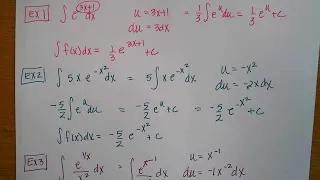 EX 1 ∫ e^(3x+1) dx u = 3x+1 = 1/3 ∫ e^u du = 1/3 e^u + c
du = 3dx
∫ f(x)dx = 1/3 e^(3x+1) + c
EX 2 ∫ 5x e^(-x²) dx = 5 ∫ x e^(-x²) dx u = -x²
du = -2x dx
-5/2 ∫ e^u du = -5/2 e^u + c = -5/2 e^(-x²) + c
∫ f(x)dx = -5/2 e^(-x²) + c
EX 3 ∫ e^(1/x)/x² dx = ∫ e^(x^-1) dx u = x^-1
du = -1x^-2 dx